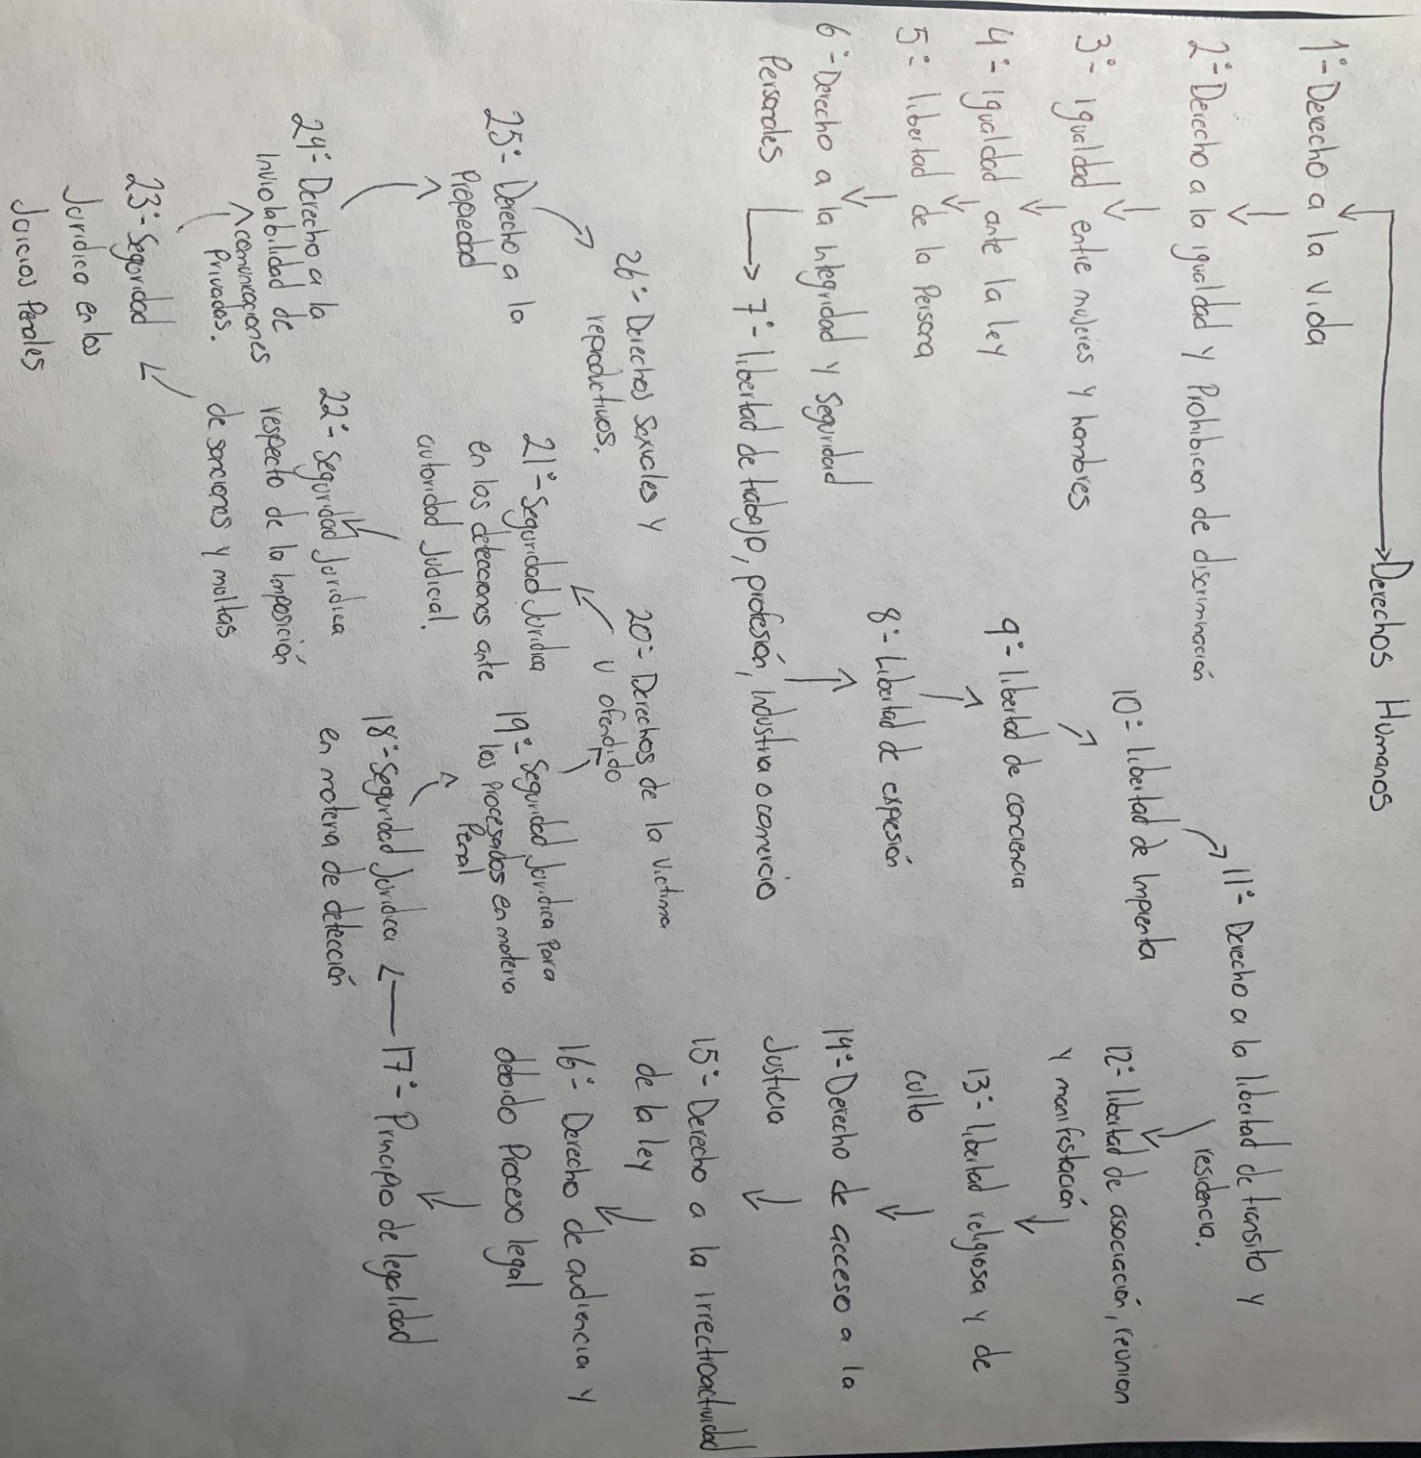 Derechos Humanos
1°- Derecho a la vida
2°- Derecho a la igualdad y Prohibicion de discriminación
3°- igualdad entre mujeres y hombres
4°- igualdad ante la ley
5°- libertad de la Persona
6°- Derecho a la integridad y Seguridad
Personales
7°- libertad de trabajo, profesión, industria o comercio
8°- Libertad de expesión
9°- libertad de conciencia
10°- libertad de imprenta
11°- Derecho a la libertad de transito y
residencia.
12°- libertad de asociación, reunion
y manifestación
13°- libertad religiosa y de
culto
14°- Derecho de acceso a la
Justicia
15°- Derecho a la irrectroactividad
de la ley
16°- Derecho de audiencia y
debido Proceso legal
17°- Principio de legalidad
18°- Seguridad Juridica
en materia de detección
19°- Seguridad Juridica Para
los Procesados en materia
Penal
20°- Derechos de la victima
u ofendido
21°- Seguridad Juridica
en las detecciones ante
autoridad Judicial.
22°- Seguridad Juridica
respecto de la imposición
de sanciones y multas
23°- Seguridad
Juridica en los
Juicios Penales
24°- Derecho a la
Inviolabilidad de
comunicaciones
Privadas.
25°- Derecho a la
Propiedad
26°- Derechos Sexuales y
reproductivos.